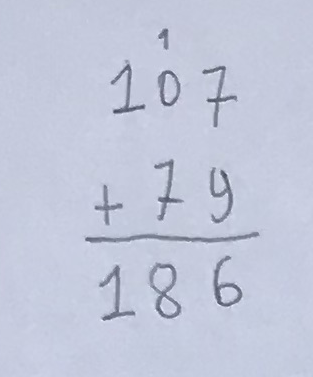 1
107
+ 79
186